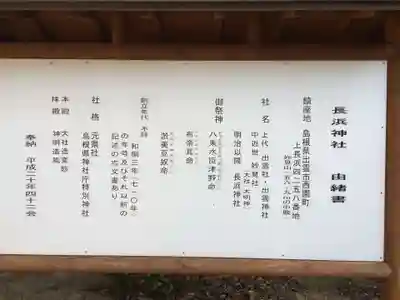 長浜神社　由緒書
鎮座地　島根県出雲市西園町
上長浜四二五八番地
妙見山(五六・九〇の中腹)
社名　上代　出雲社・出雲神社
中近世　妙見社
明治以降　長浜神社
御祭神
八束水臣津野命
布帝耳命
淤美豆奴命
創立年代　不詳
和銅三年(七一〇年)
の年号及びそれ以前の
記述の古文書あり
社格　元県社
島根県神社庁特別神社
本殿　大社造変形
拝殿　神明造
奉納　平成二十年四十二会